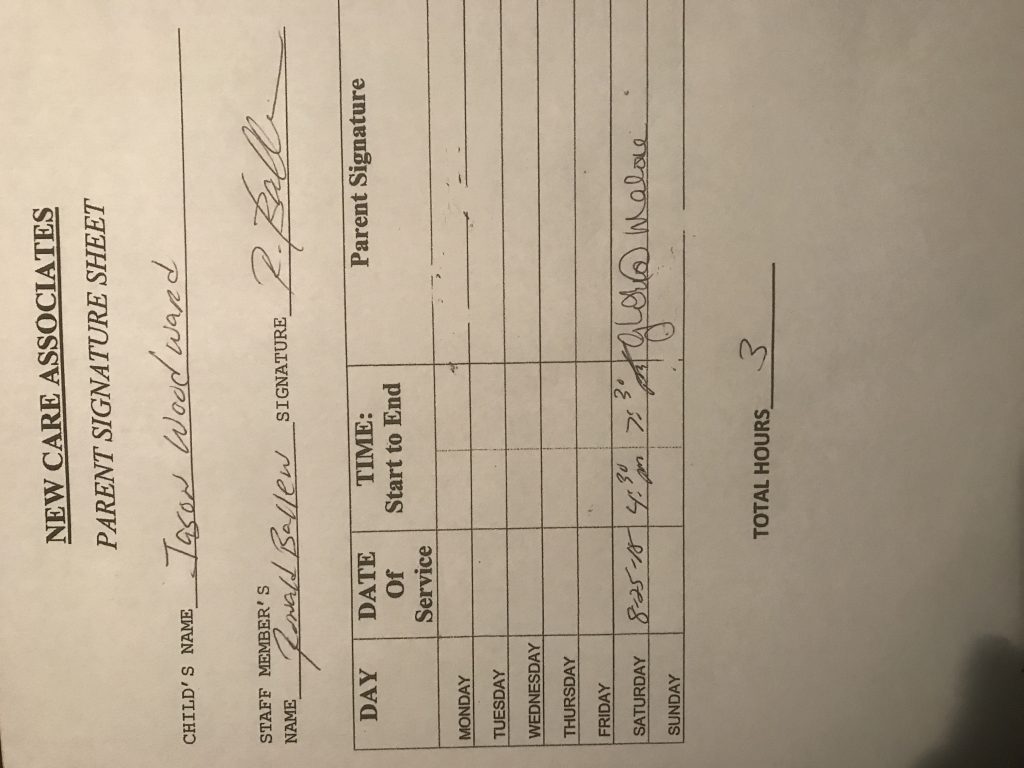 NEW CARE ASSOCIATES
PARENT SIGNATURE SHEET
CHILD'S NAME Jason Woodward
STAFF MEMBER'S
NAME Ronald Ballew SIGNATURE R. Ball
DAY DATE Of Service TIME: Start to End Parent Signature
MONDAY
TUESDAY
WEDNESDAY
THURSDAY
FRIDAY
SATURDAY 8-25-18 4:30 pm 7:30 pm Gloria Malone
SUNDAY
TOTAL HOURS 3